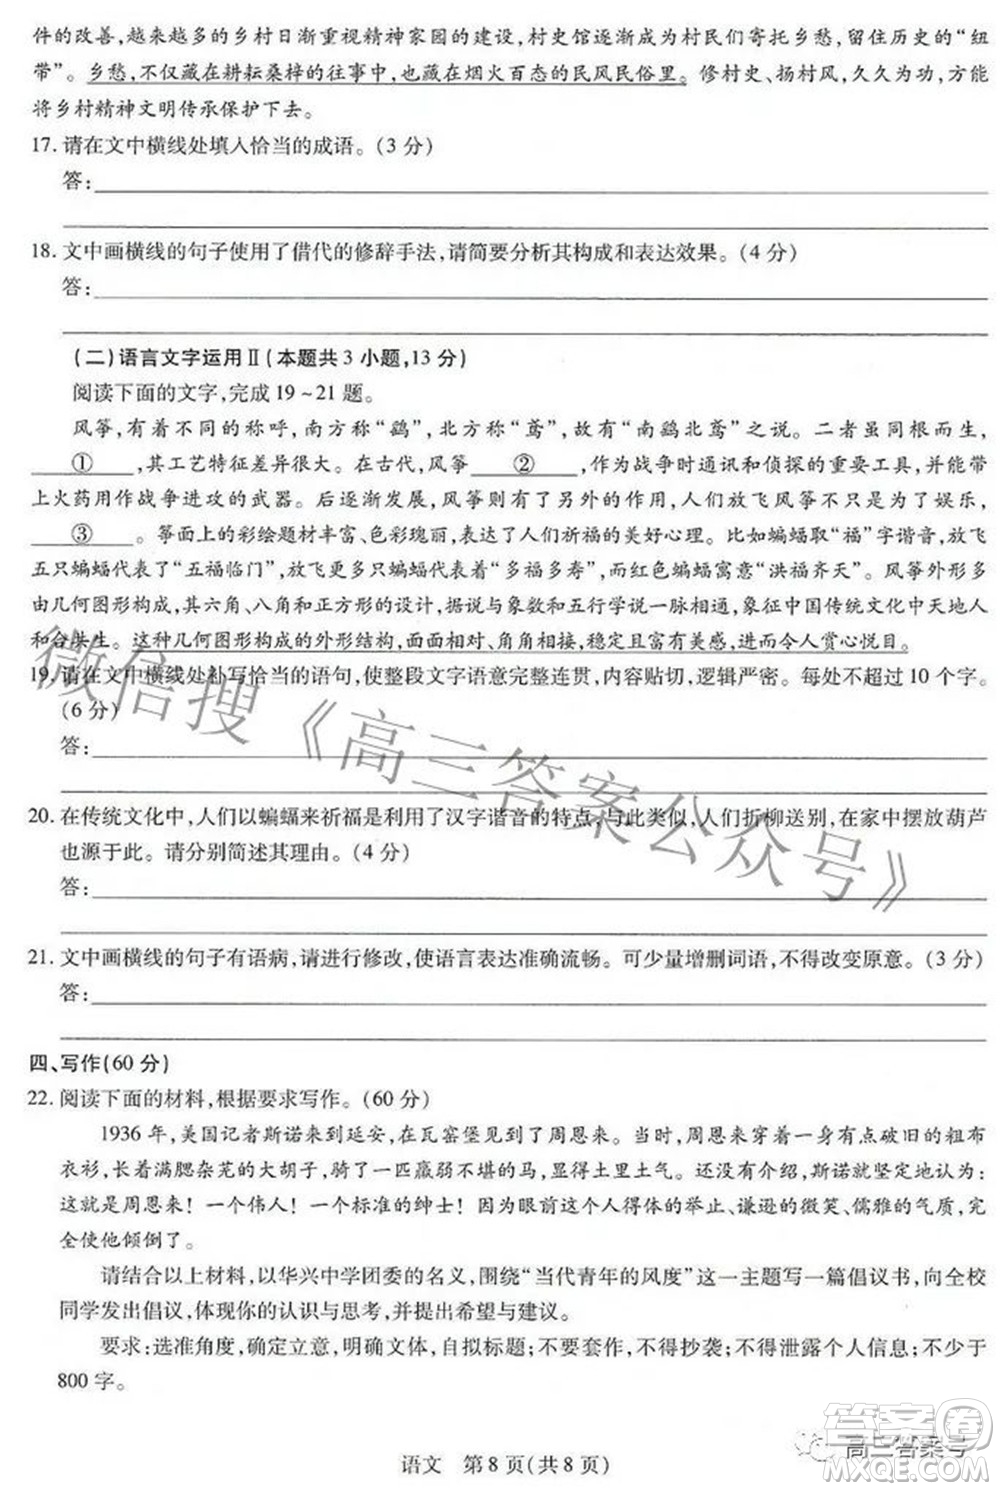 件的改善,越来越多的乡村日渐重视精神家园的建设,村史馆逐渐成为村民们寄托乡愁,留住历史的“纽
带”。乡愁,不仅藏在耕耘桑梓的往事中,也藏在烟火百态的民风民俗里。修村史、扬村风,久久为功,方能
将乡村精神文明传承保护下去。
17. 请在文中横线处填入恰当的成语。(3 分)
答:
18. 文中画横线的句子使用了借代的修辞手法,请简要分析其构成和表达效果。(4 分)
答:
(二)语言文字运用Ⅱ(本题共 3 小题,13 分)
阅读下面的文字,完成 19~21 题。
风筝,有着不同的称呼,南方称“鹞”,北方称“鸢”,故有“南鹞北鸢”之说。二者虽同根而生,
①,其工艺特征差异很大。在古代,风筝②,作为战争时通讯和侦探的重要工具,并能带
上火药用作战争进攻的武器。后逐渐发展,风筝有了另外的作用,人们放飞风筝不只是为了娱乐,
③。筝面上的彩绘题材丰富、色彩瑰丽,表达了人们祈福的美好心愿。比如蝙蝠取“福”字谐音,放飞
五只蝙蝠代表了“五福临门”,放飞更多的蝙蝠代表着“多福多寿”,而红色蝙蝠寓意“洪福齐天”。风筝
由几何图形构成,其六角、八角和正方形的设计,据说与象数和五行学说一脉相通,象征中国传统文化中天地人
和谐共生。这种几何图形构成的外形结构,面面相对、角角相接,稳定且富有美感,进而令人赏心悦目。
19. 请在文中横线处补写恰当的语句,使整段文字语意完整连贯,内容贴切,逻辑严密。每处不超过 10 个字。
(6 分)
答:
20. 在传统文化中,人们以蝙蝠来祈福是利用了汉字谐音的特点,与此类似,人们折柳送别,在家中摆放葫芦
也源于此。请分别简述其理由。(4 分)
答:
21. 文中画横线的句子有语病,请进行修改,使语言表达准确流畅。可少量增删词语,不得改变原意。(3 分)
答:
四、写作(60 分)
22. 阅读下面的材料,根据要求写作。(60 分)
1936 年,美国记者斯诺来到延安,在瓦窑堡见到了周恩来。当时,周恩来穿着一身有点破旧的粗布
衣衫,长着一脸满腮杂芜的大胡子,骑了一匹羸弱不堪的马,里里外外土里土气。还没有介绍,斯诺就坚定地认为:
这是周恩来!一个伟人!一个标准的绅士!因为眼前这个人得体的举止、谦逊的微笑、儒雅的气质,完
全使他倾倒了。
请结合以上材料,以华兴中学团委的名义,围绕“当代青年的风度”这一主题写一篇倡议书,向全校
同学发出倡议,体现你的认识与思考,并提出希望与建议。
要求:选准角度,确定立意,明确文体,自拟标题;不要套作,不得抄袭;不得泄露个人信息;不少于
800 字。
微信搜《高三答案公众号》
高三答案号
答案圈
MXQE.COM
语文 第 8 页(共 8 页)